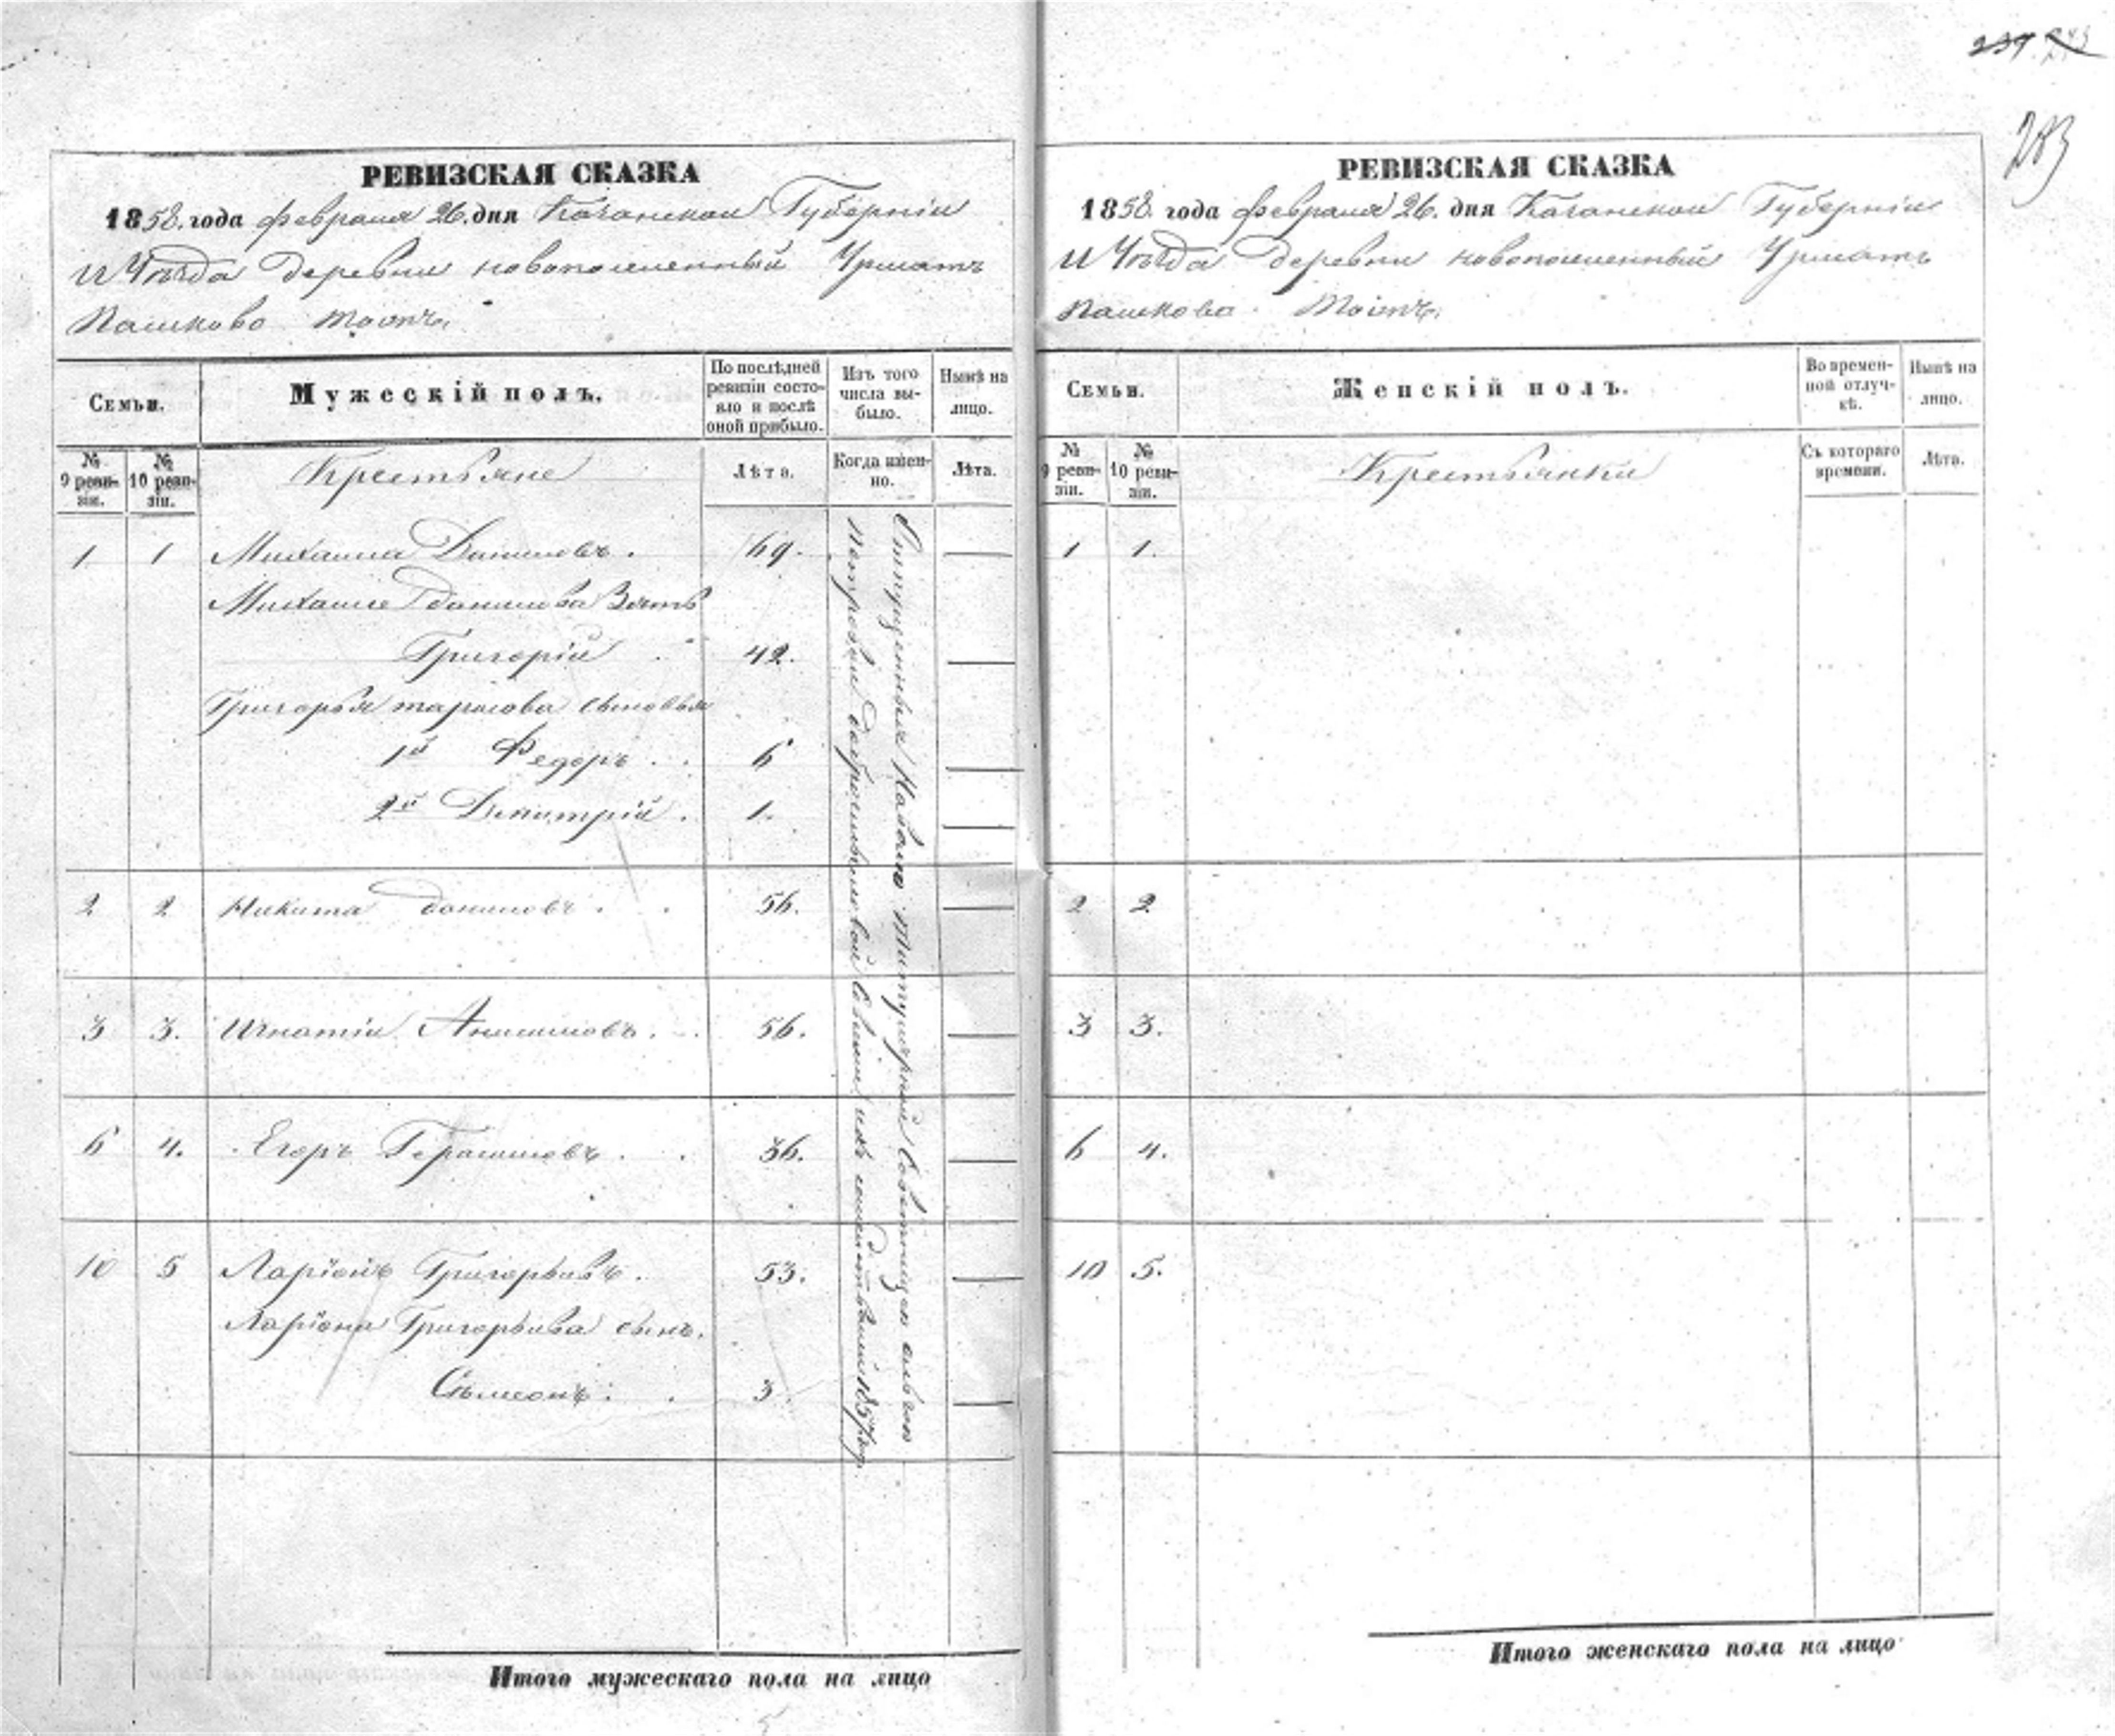 239.
283
РЕВИЗСКАЯ СКАЗКА
1858. года февраля 26. дня Казанской Губерніи
и Уѣзда деревни новопоселенный Урматъ
Пашково тожъ.
Семьи.
Мужескій полъ.
По послѣдней ревизіи состояло и послѣ оной прибыло.
Изъ того числа выбыло.
Нынѣ на лицо.
№ 9 ревизіи.
№ 10 ревизіи.
Крестьяне
Лѣта.
Когда именно.
Лѣта.
1 1 Михаила Даниловъ. 69.
Михаилы Данилова Зять
Григорій 42.
Григорья тарасова сыновья
1й Федоръ 6
2й Дмитрій. 1.
2 2 Никита даниловъ. 56.
3 3. Игнатій 56.
6 4. Егоръ Герасимовъ. 36.
10 5 Ларіонъ Григорьевъ. 53.
Ларіона Григорьева сынъ.
Сѣмеонъ. 3.
Отпущенныя Титулярной Совѣтницею
Итого мужескаго пола на лицо
РЕВИЗСКАЯ СКАЗКА
1858. года февраля 26. дня Казанской Губерніи
и Уѣзда деревни новопоселенный Урматъ
Пашкова тожъ.
Семьи.
Женскій полъ.
Во временной отлучкѣ.
Нынѣ на лицо.
№ 9 ревизіи.
№ 10 ревизіи.
Крестьянки
Съ котораго времени.
Лѣта.
1 1.
2 2
3 3.
6 4.
10 5.
Итого женскаго пола на лицо